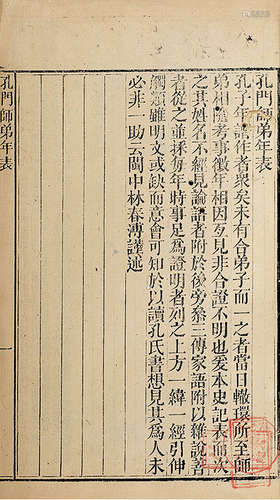 孔門師弟年表
孔子年譜作者衆矣未有合弟子而一之者當日轍環所至師
弟相隨考事徵年相因互見非合證不明也爰本史記表而次
之其姓名不經見論語者附於後旁參三傳家語附以雜說善
者從之並採每年時事足為證明者列之上方一緯一經引伸
觸類雖明文或缺而意會可知於以讀孔氏書想見其為人未
必非一助云閩中林春溥謹述
孔門師弟年表
一